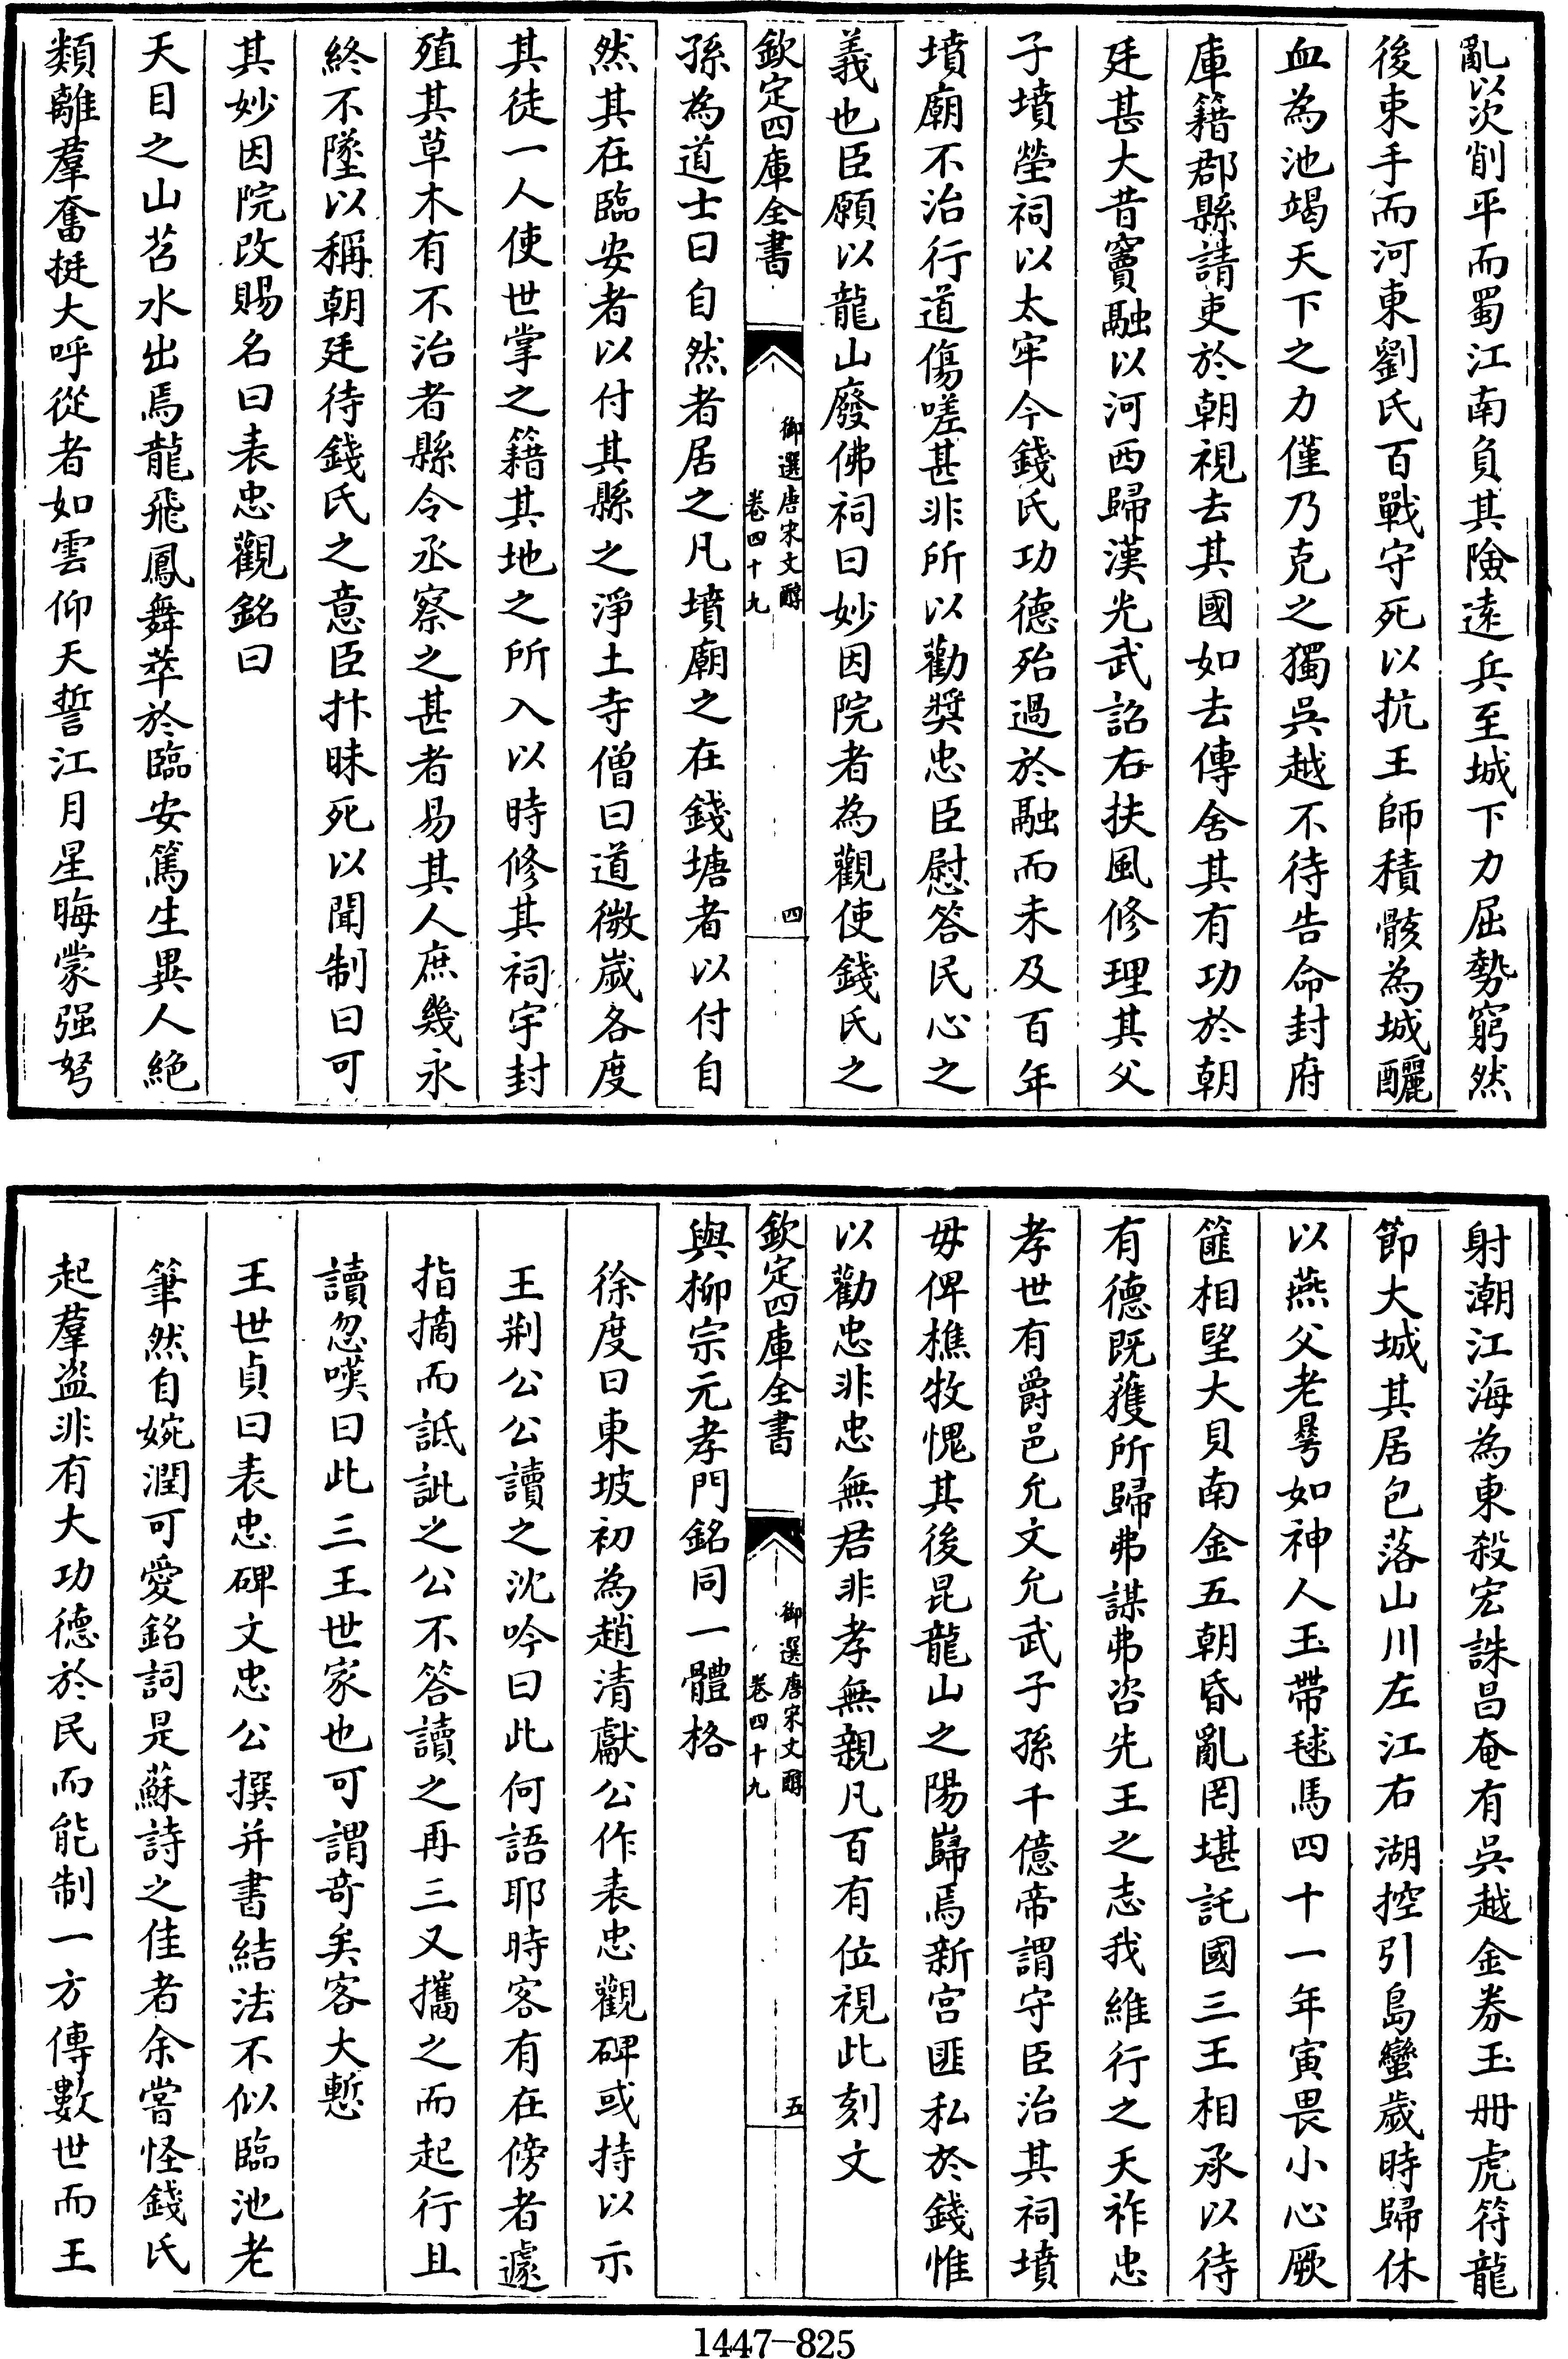 亂以次削平而蜀江南負其險遠兵至城下力屈勢窮然
後束手而河東劉氏百戰守死以抗王師積骸為城釃
血為池竭天下之力僅乃克之獨吳越不待告命封府
庫籍郡縣請吏於朝視去其國如去傳舍其有功於朝
廷甚大昔竇融以河西歸漢光武詔右扶風修理其父
子墳塋祠以太牢今錢氏功德殆過於融而未及百年
墳廟不治行道傷嗟甚非所以勸奬忠臣慰答民心之
義也臣願以龍山廢佛祠曰妙因院者為觀使錢氏之
欽定四庫全書
御選唐宋文醇
卷四十九
四
孫為道士曰自然者居之凡墳廟之在錢塘者以付自
然其在臨安者以付其縣之淨土寺僧曰道微嵗各度
其徒一人使世掌之籍其地之所入以時修其祠宇封
殖其草木有不治者縣令丞察之甚者易其人庶幾永
終不墜以稱朝廷待錢氏之意臣抃昧死以聞制曰可
其妙因院改賜名曰表忠觀銘曰
天目之山苕水出焉龍飛鳳舞萃於臨安篤生異人絶
類離羣奮挺大呼從者如雲仰天誓江月星晦蒙强弩
射潮江海為東殺宏誅昌奄有吳越金券玉冊虎符龍
節大城其居包落山川左江右湖控引島蠻歲時歸休
以燕父老曅如神人玉帶毬馬四十一年寅畏小心厥
篚相望大貝南金五朝昏亂罔堪託國三王相承以待
有德既獲所歸弗謀弗咨先王之志我維行之天祚忠
孝世有爵邑允文允武子孫千億帝謂守臣治其祠墳
毋俾樵牧愧其後昆龍山之陽巋焉新宫匪私於錢惟
以勸忠非忠無君非孝無親凡百有位視此刻文
欽定四庫全書
御選唐宋文醇
卷四十九
五
與柳宗元孝門銘同一體格
徐度曰東坡初為趙清獻公作表忠觀碑或持以示
王荆公公讀之沈吟曰此何語耶時客有在傍者遽
指摘而詆訿之公不答讀之再三又攜之而起行且
讀忽嘆曰此三王世家也可謂奇矣客大慙
王世貞曰表忠碑文忠公撰并書結法不似臨池老
筆然自婉潤可愛銘詞是蘇詩之佳者余嘗怪錢氏
起羣盜非有大功德於民而能制一方傳數世而王
1447-825